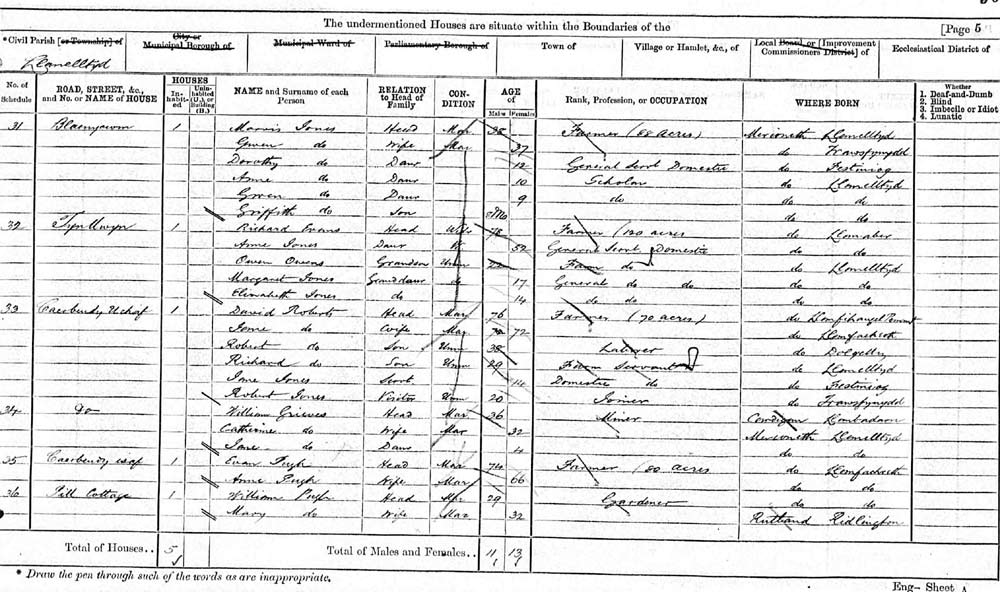 The undermentioned Houses are situate within the Boundaries of the
[Page 5
*Civil Parish [or Township] of
City or Municipal Borough of
Municipal Ward of
Parliamentary Borough of
Town of
Village or Hamlet, &c., of
Local Board, or [Improvement Commissioners District] of
Ecclesiastical District of
Llanelltyd
No. of Schedule
ROAD, STREET, &c., and No. or NAME of HOUSE
HOUSES
Inhabited
Uninhabited (U.) or Building (B.)
NAME and Surname of each Person
RELATION to Head of Family
CONDITION
AGE of
Males
Females
Rank, Profession, or OCCUPATION
WHERE BORN
Whether
1. Deaf-and-Dumb
2. Blind
3. Imbecile or Idiot
4. Lunatic
31 1 Morris Jones Head Mar 38 Farmer (88 acres) Merioneth Llanelltyd
Gwen do Wife Mar 37 do Trawsfynydd
Dorothy do Daur 12 General Servt Domestic do Festiniog
Anne do Daur 10 Scholar do Llanelltyd
Gwen do Daur 9 do do do
Griffith do Son do do
32 1 Richard Evans Head Farmer (120 acres do Llanaber
Anne Jones Daur 52 General Servt Domestic do do
Owen Owens Grandson Unm Farm do do Llanelltyd
Margaret Jones Granddaur do 17 General do do do do
Elizabeth Jones do 14 do do do do
33 Caerbwdy Uchaf 1 David Roberts Head Mar 76 Farmer (70 acres) do
Jane do Wife Mar 72 do Llanfachreth
Robert do Son Unm 38 Labourer do Dolgelley
Richard do Son Unm 29 Farm Servant do Llanelltyd
Jane Jones Servt 14 Domestic do do Festiniog
Robert Jones Visitor Unm 20 Joiner do Trawsfynydd
34 Do 1 William Grieves Head Mar 36 Miner Cardigan
Catherine do Wife Mar 32 Merioneth Llanelltyd
Jane do Daur 4 do do
35 Caerbwdy isaf 1 Evan Pugh Head Mar 74 Farmer (80 acres do Llanfachreth
Anne Pugh Wife Mar 66 do do
36 Cottage 1 William Pugh Head Mar 29 Gardener do do
Mary do Wife Mar 32 Rutland Ridlington
Total of Houses.. 5
Total of Males and Females.. 11 13
* Draw the pen through such of the words as are inappropriate.
Eng- Sheet A